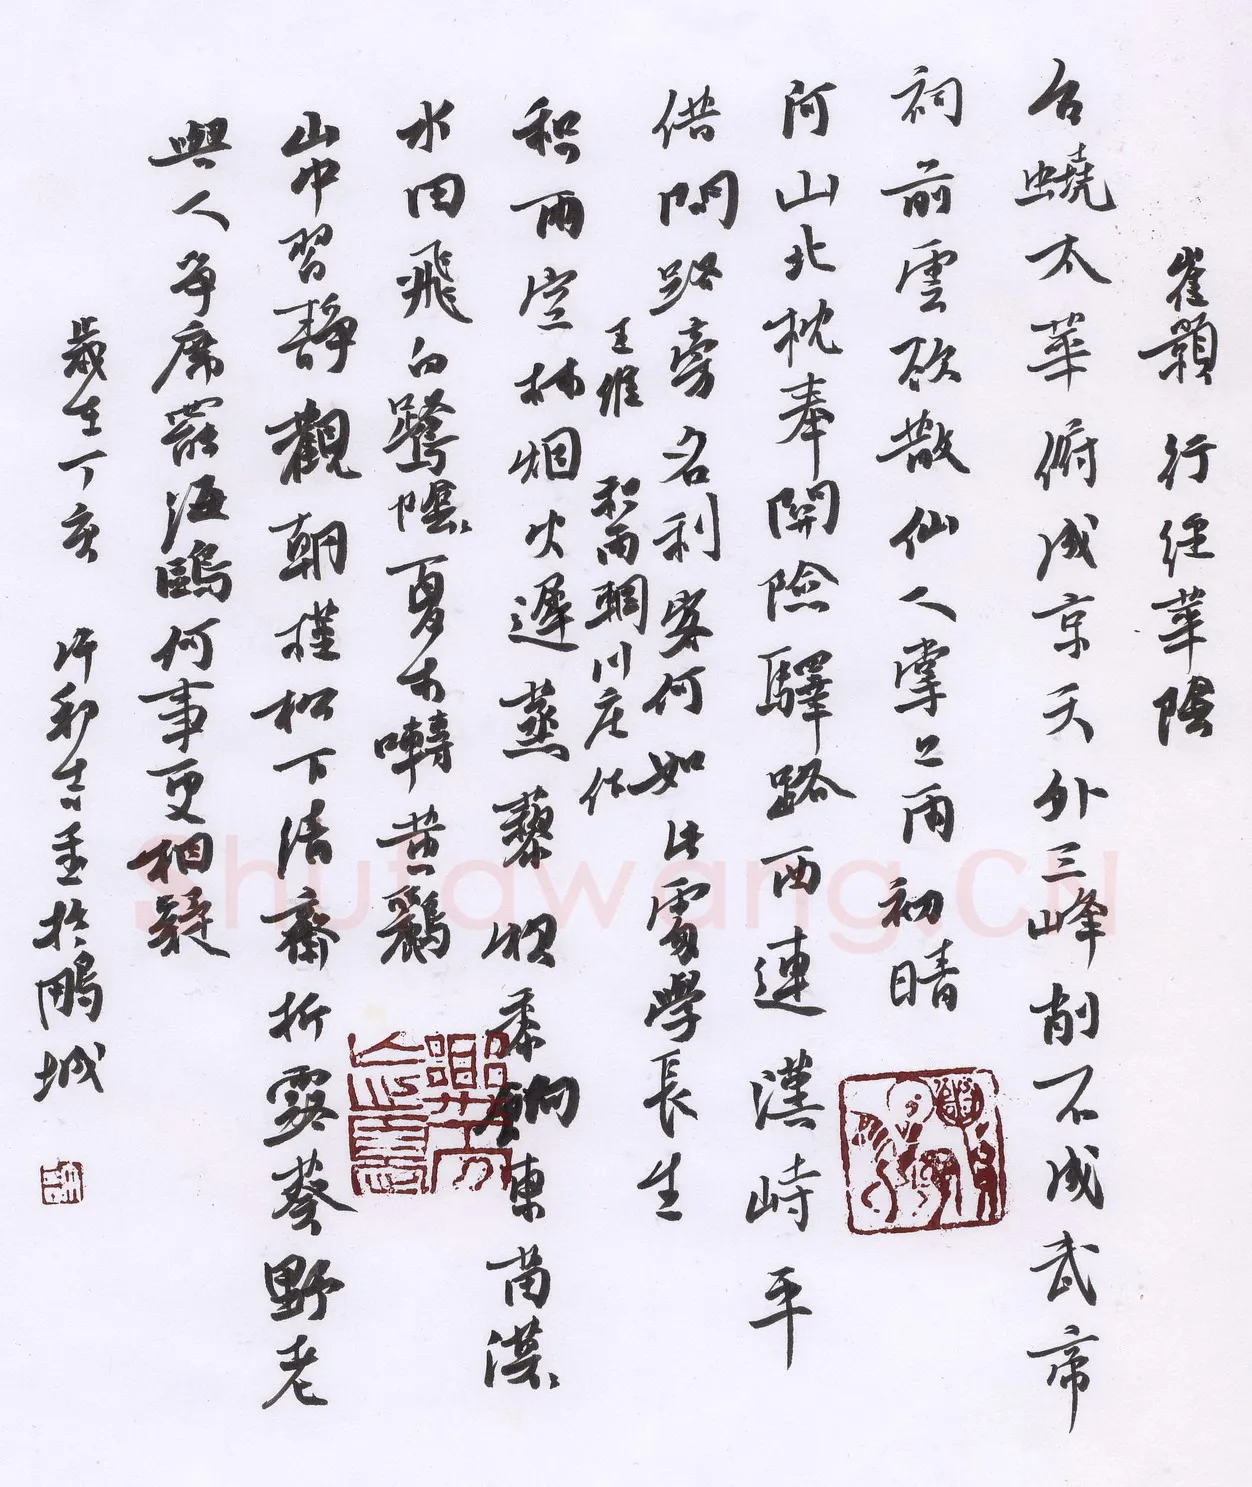 崔顥 行經華陰
台蟯太華俯咸京天外三峰削不成武帝
祠前雲欲散仙人掌上雨初晴
河山北枕秦關險驛路西連漢峙平
借問路旁名利客何如此處學長生
王維 积雨輞川庄作
积雨空林烟火遲蒸藜炊黍餉東菑漠〻
水田飛白鷺陰〻夏木囀黄鸝
山中習靜觀朝槿松下清齋折露葵野老
與人争席罷海鷗何事更相疑
歲在丁亥 许 吉書於鵬城
Shufawang.CN